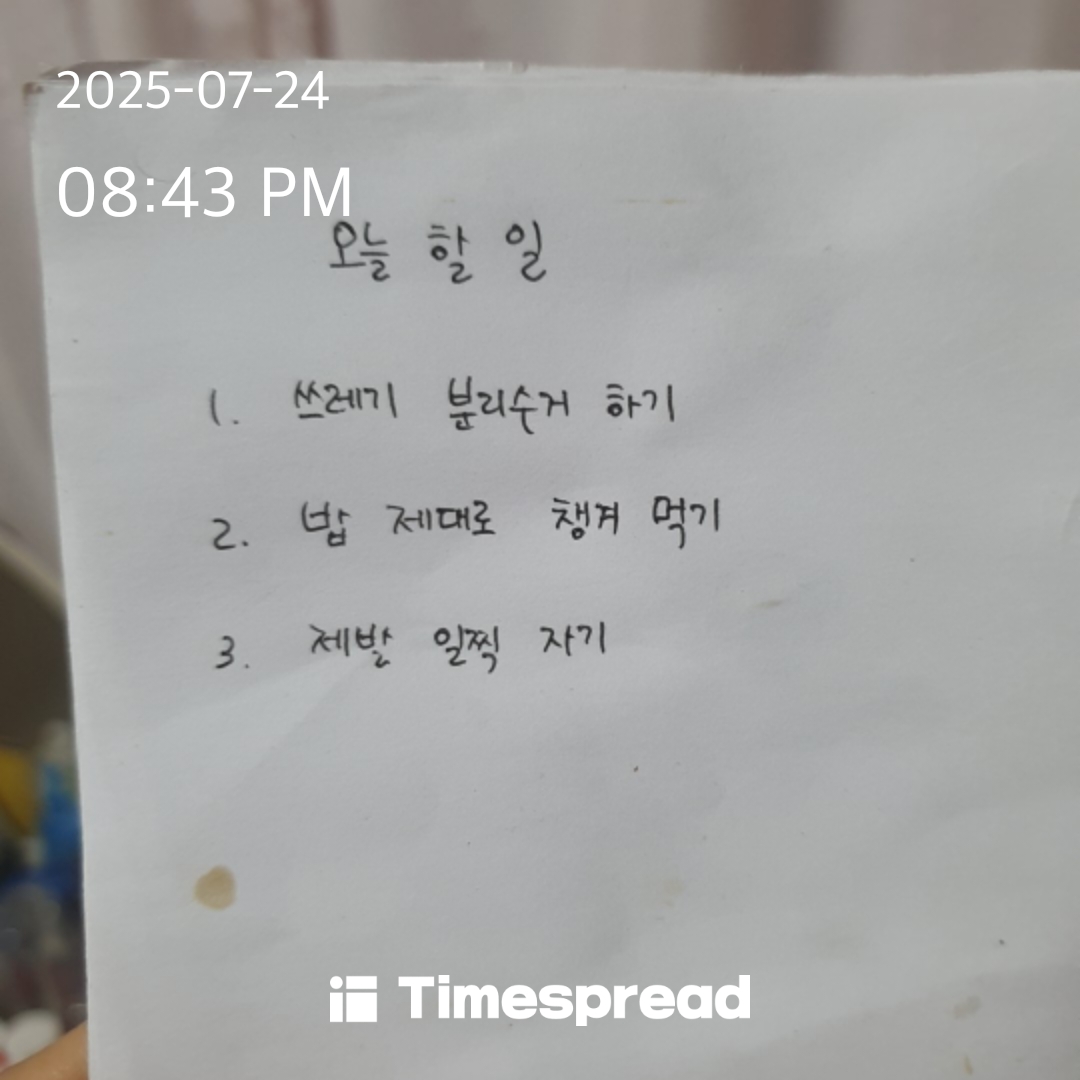 2025-07-24
08:43 PM
오늘 할 일
1. 쓰레기 분리수거 하기
2. 밥 제대로 챙겨 먹기
3. 제발 일찍 자기
Timespread